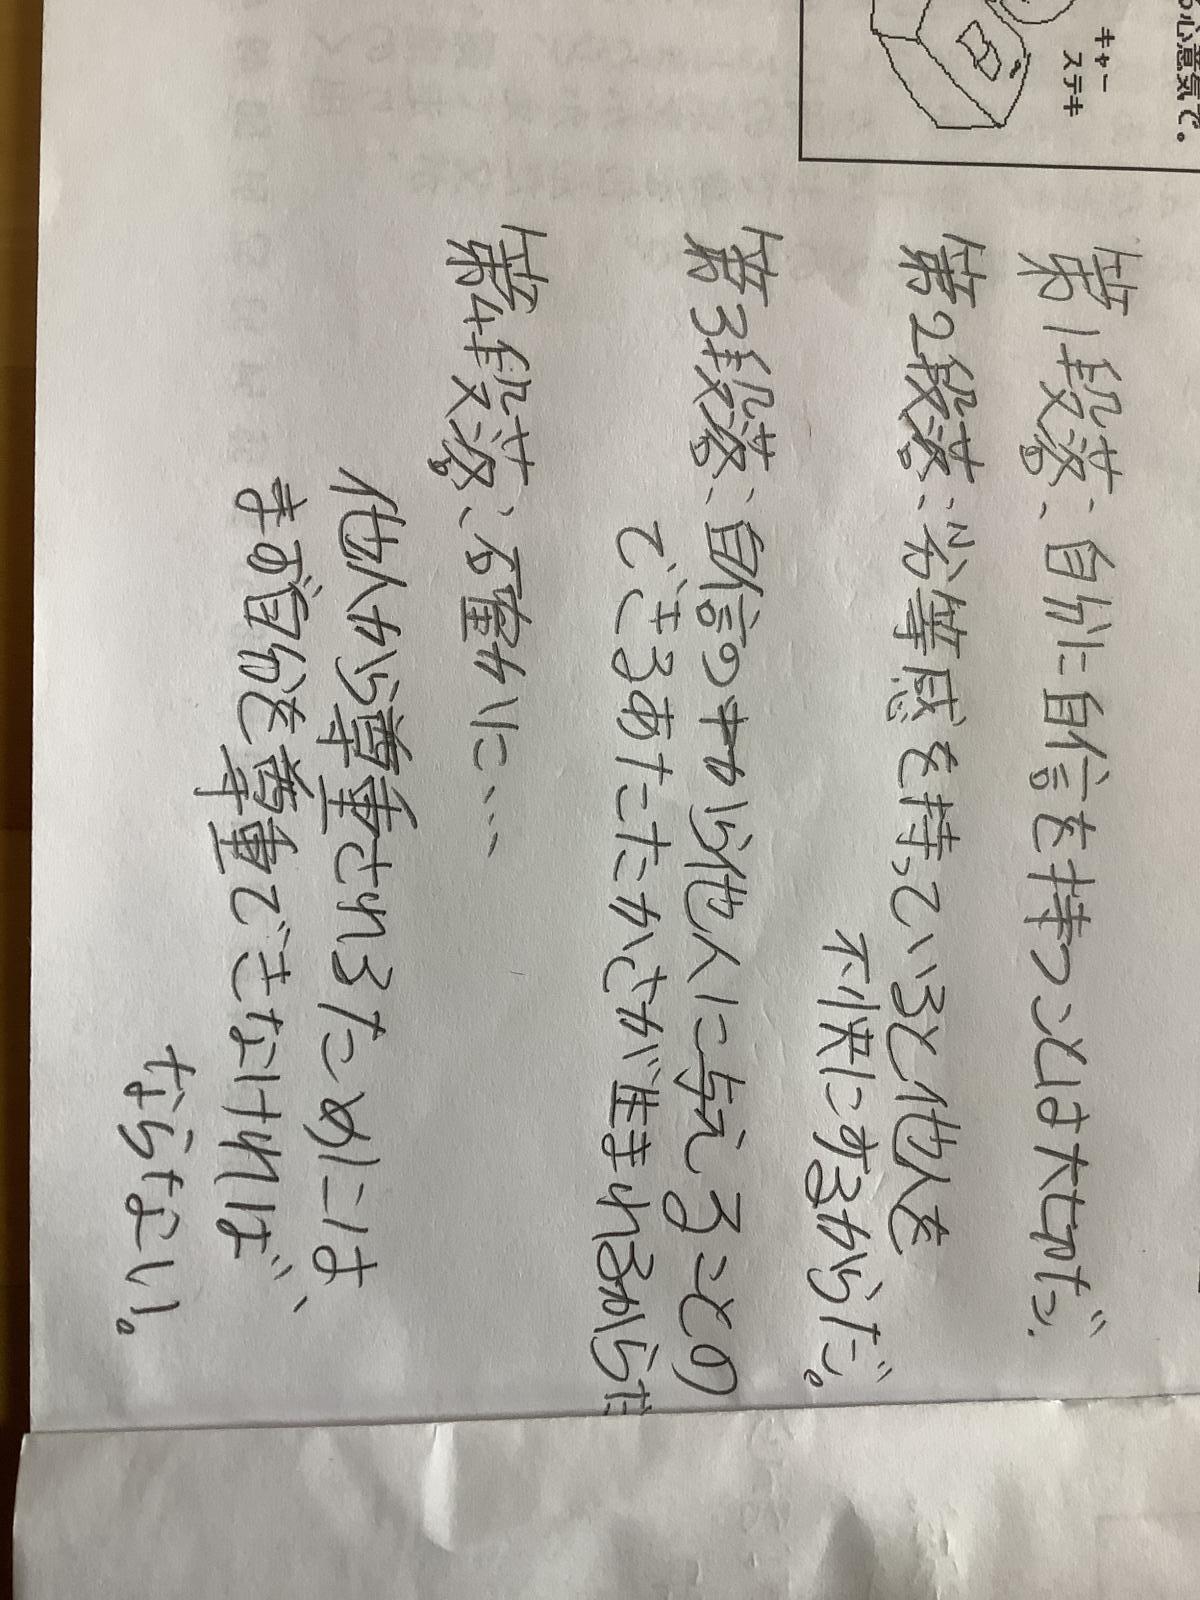 る心意気で。
キャー
ステキ
第1段落:自分に自信を持つことは大切だ.
第2段落:劣等感を持っていると他人を
不愉快にするからだ。
第3段落:自信の中から他人に与えることの
できるあたたかさが生まれるからだ
第4段落:確かに…
他人から尊重されるためには
まず自分を尊重できなければ、
ならない。